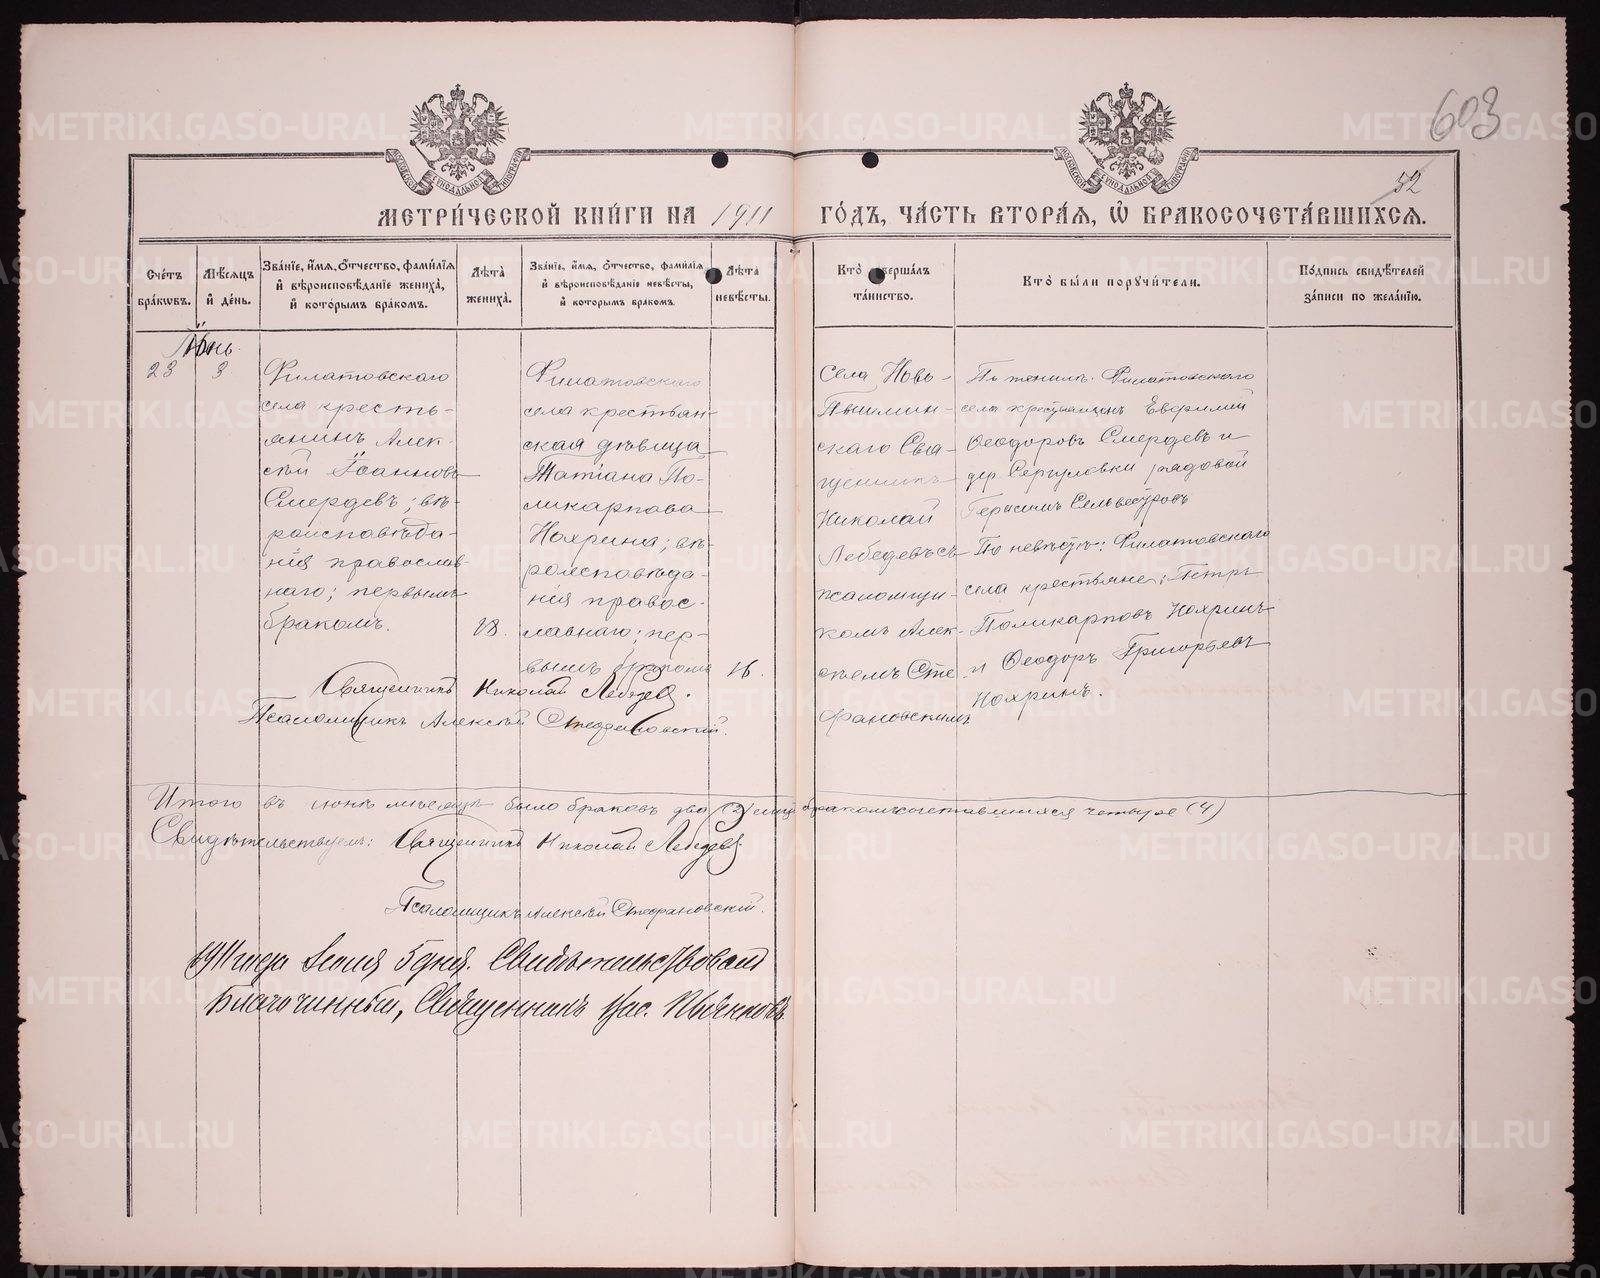 603
52
МОСКОВСКОЙ СѴНОДАЛЬНОЙ ТИПОГРАФІИ
МОСКОВСКОЙ СѴНОДАЛЬНОЙ ТИПОГРАФІИ
МЕТРИ́ЧЕСКОЙ КНИ́ГИ НА 1911 ГО́ДЪ, ЧА́СТЬ ВТОРА́Ѧ, Ѽ БРАКОСОЧЕТА́ВШИХСѦ.
Сче́тъ бра́кѡвъ.
Мѣ́сѧцъ и҆ де́нь.
Зва́нїе, и҆́мѧ, ѻ҆́тчество, фами́лїѧ и҆ вѣроисповѣ́данїе жениха̀, и҆ кото́рымъ бра́комъ.
Лѣ́та жениха̀.
Зва́нїе, и҆́мѧ, ѻ҆́тчество, фами́лїѧ и҆ вѣроисповѣ́данїе невѣ́сты, и҆ кото́рымъ бра́комъ.
Лѣ́та невѣ́сты.
Кто̀ соверша́лъ та́инство.
Кто̀ бы́ли поручи́тели.
По́дпись свидѣ́телей за́писи по жела́нїю.
Іюнь
23
3
Филатовскаго
села кресть-
янинъ Алек-
сѣй Іоанновъ
Смердевъ; вѣ-
роисповѣда-
нія православ-
наго; первымъ
бракомъ.
18.
Филатовскаго
села крестьян-
ская дѣвица
Татіана По-
ликарпова
Нохрина; вѣ-
роисповѣда-
нія правос-
лавнаго; пер-
вымъ бракомъ
16.
Села Ново-
Пышмин-
скаго Свя-
щенникъ
Николай
Лебедевъ съ
псаломщи-
комъ Алек-
сѣемъ Сте-
фановскимъ
По женихѣ: Филатовскаго
села крестьянинъ Евфимій
Ѳеодоровъ Смердевъ и
дер. Сергуловки рядовой
Герасимъ Сельвестровъ
По невѣстѣ: Филатовскаго
села крестьяне: Петръ
Поликарповъ Нохринъ
и Ѳеодоръ Григорьевъ
Нохринъ.
Священникъ Николай Лебедевъ.
Псаломщикъ Алексѣй Стефановскій.
Итого въ іюнѣ мѣсяцѣ было браковъ два (2) лицъ бракомъ сочетавшихся четыре (4)
Свидѣтельствуемъ: Священникъ Николай Лебедевъ.
Псаломщикъ Алексѣй Стефановскій.
1911 года 5 дня. Свидѣтельствовалъ
Благочинный, Священникъ
METRIKI.GASO-URAL.RU